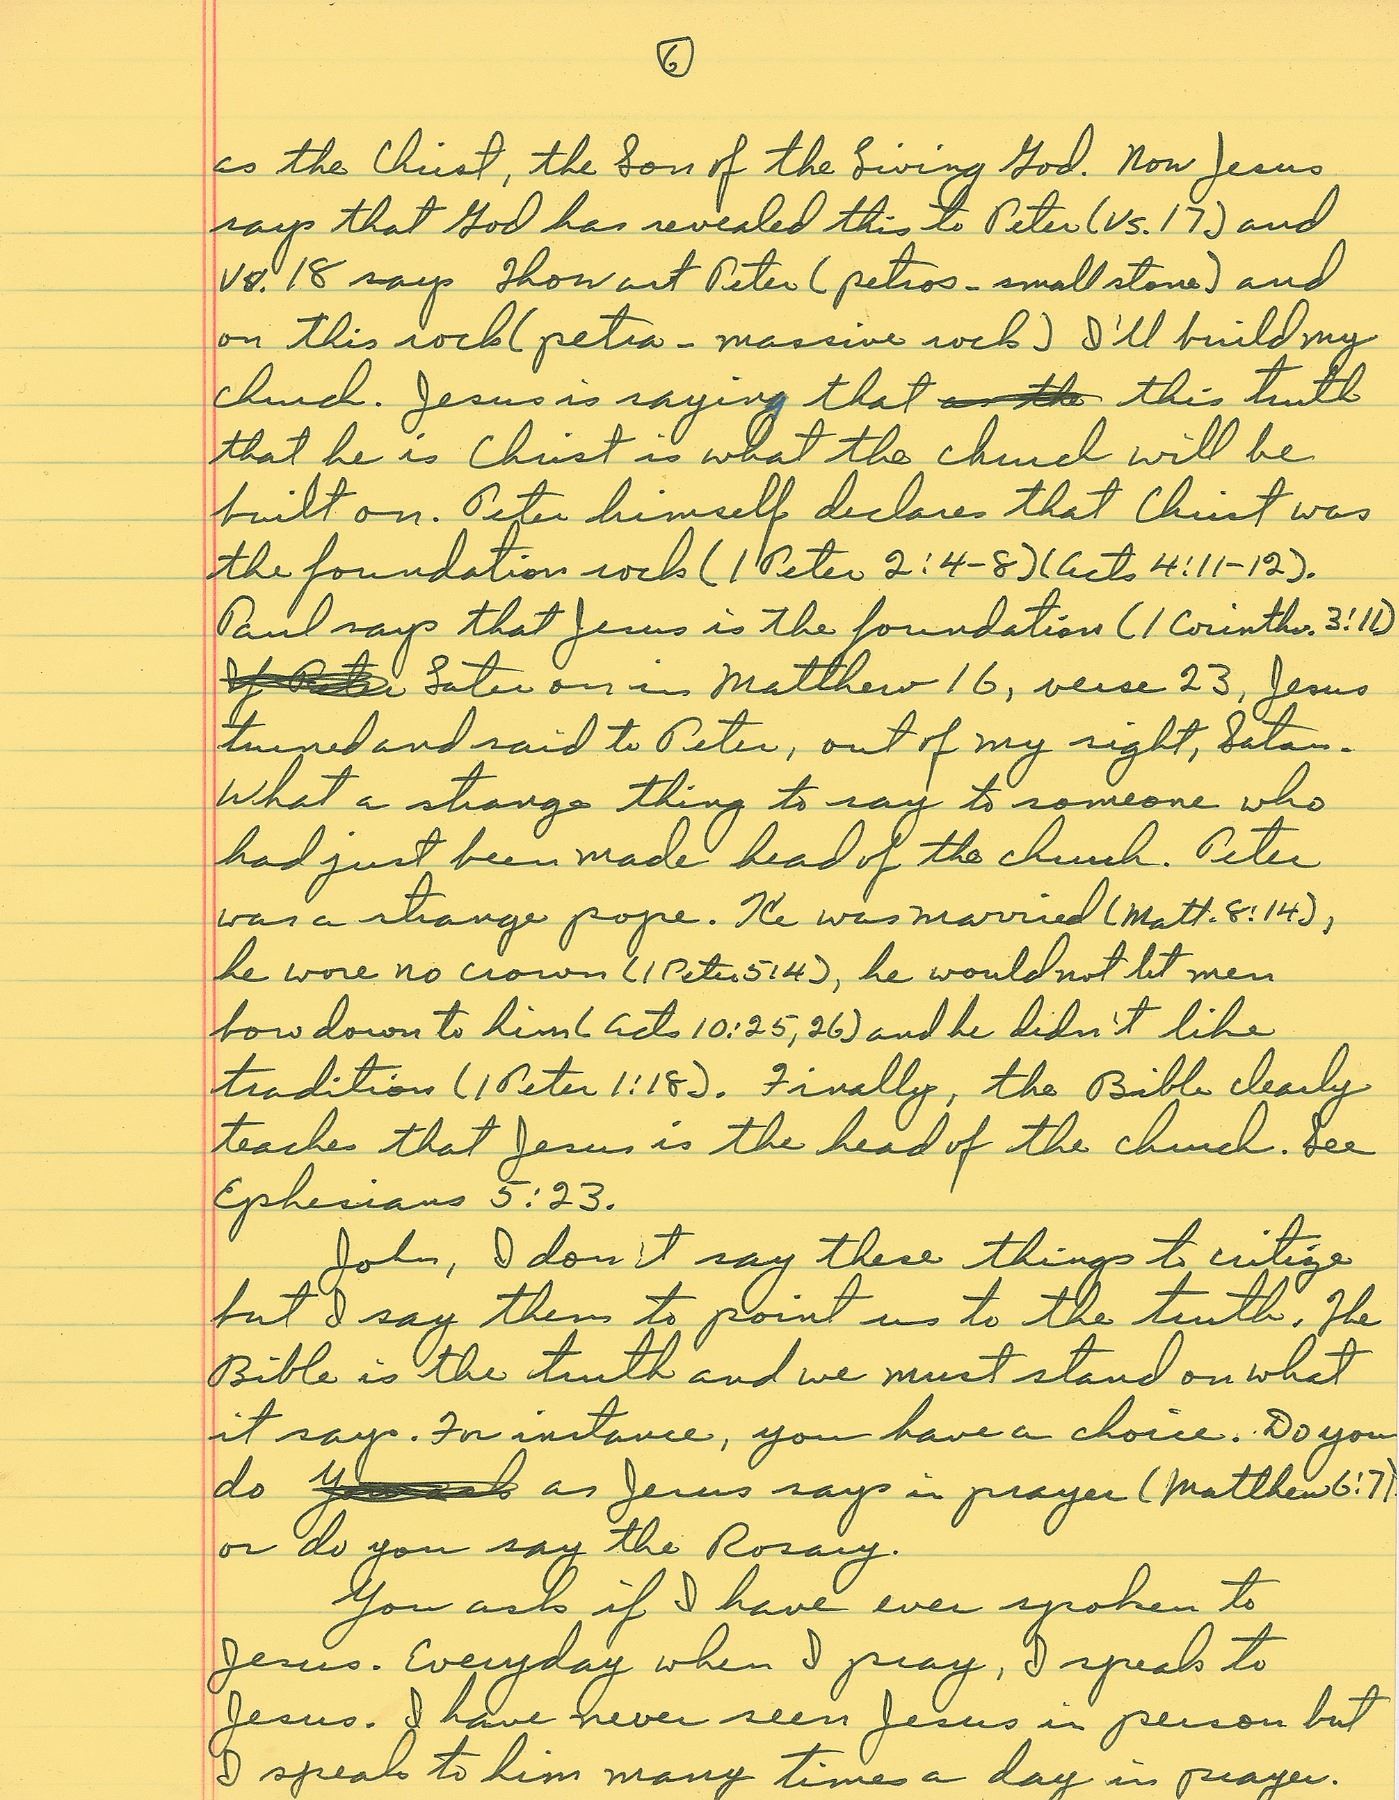 6
as the Christ, the Son of the Living God. Now Jesus
says that God has revealed this to Peter (Vs. 17) and
Vs. 18 says Thou art Peter (petros - small stone) and
on this rock (petra - massive rock) I'll build my
church. Jesus is saying that as the this truth
that he is Christ is what the church will be
built on. Peter himself declares that Christ was
the foundation rock (1 Peter 2:4-8) (Acts 4:11-12).
Paul says that Jesus is the foundation (1 Corinth. 3:11)
If Peter Later on in Matthew 16, verse 23, Jesus
turned and said to Peter, out of my sight, Satan.
What a strange thing to say to someone who
had just been made head of the church. Peter
was a strange pope. He was married (Matt. 8:14),
he wore no crown (1 Peter 5:4), he would not let men
bow down to him (Acts 10:25,26) and he didn't like
tradition (1 Peter 1:18). Finally, the Bible clearly
teaches that Jesus is the head of the church. See
Ephesians 5:23.
John, I don't say these things to critize
but I say them to point us to the truth. The
Bible is the truth and we must stand on what
it says. For instance, you have a choice. Do you
do as Jesus says in prayer (Matthew 6:7)
or do you say the Rosary.
You ask if I have ever spoken to
Jesus. Everyday when I pray, I speak to
Jesus. I have never seen Jesus in person but
I speak to him many times a day in prayer.